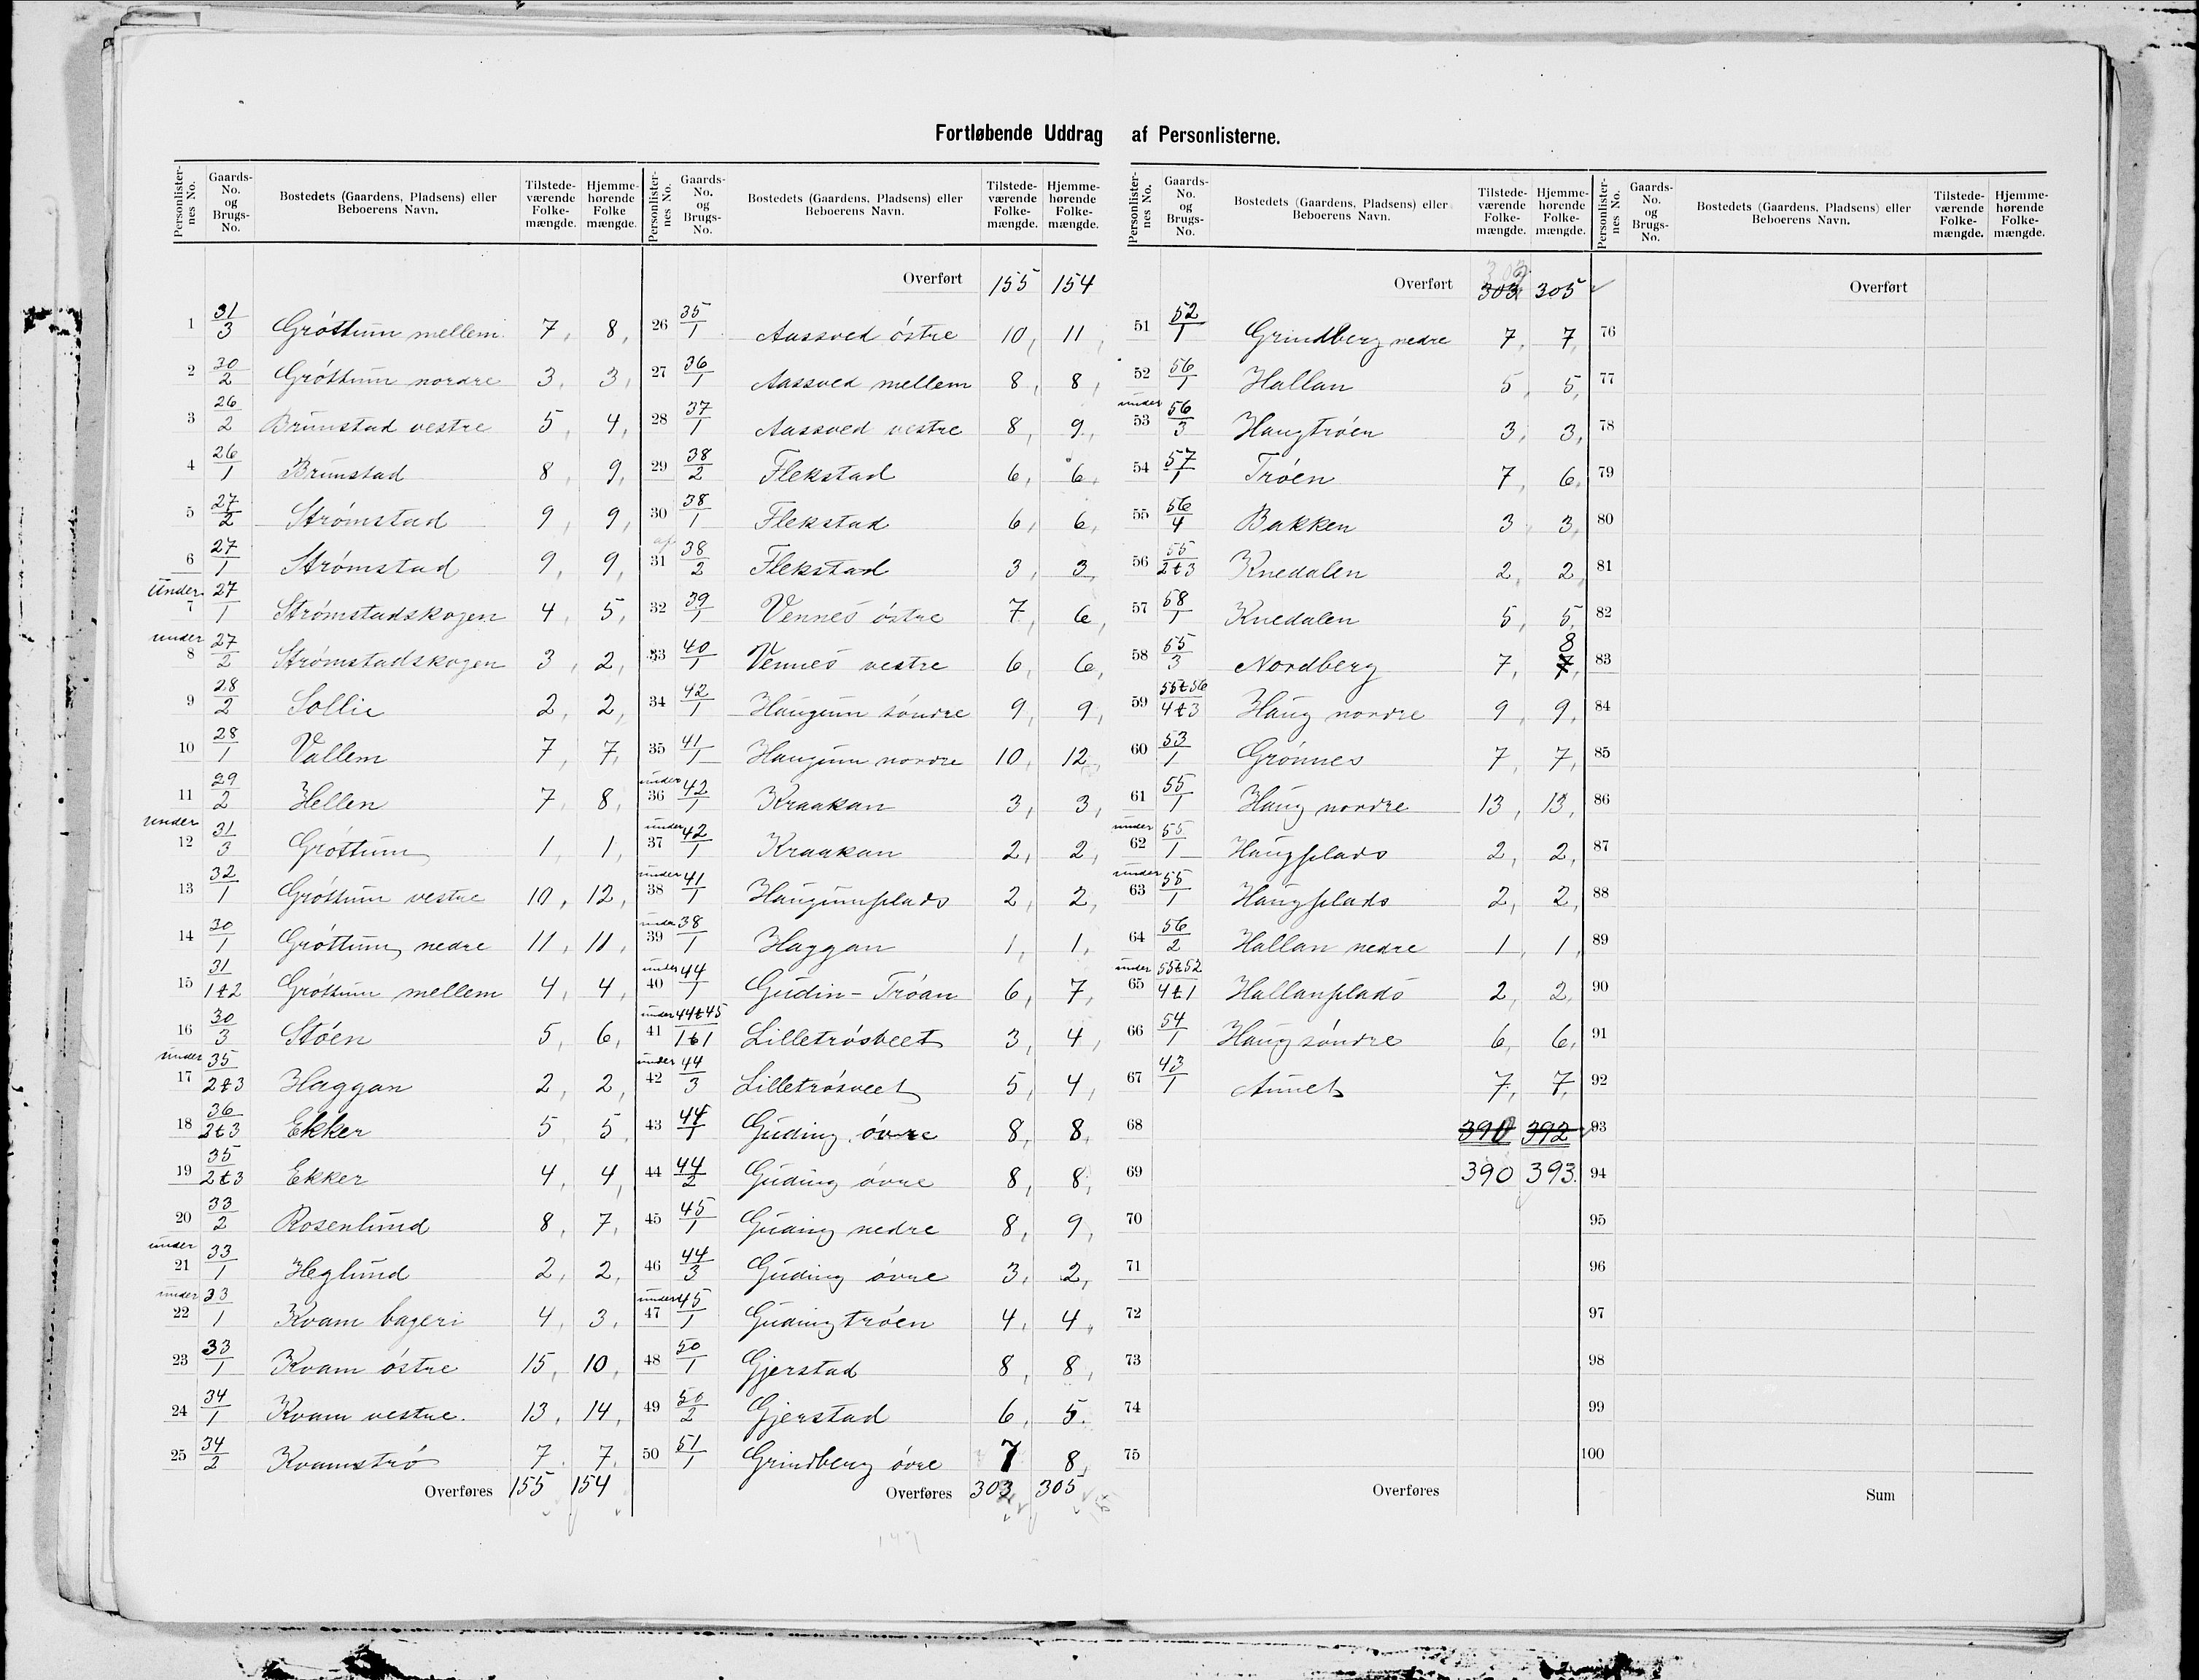 Fortløbende Uddrag af Personlisterne.
Personlister-nes No. | Gaards-No. og Brugs-No. | Bostedets (Gaardens, Pladsens) eller Beboerens Navn. | Tilstede-værende Folke-mængde. | Hjemme-hørende Folke mængde.
1 31/3 Gróttum mellem 7, 8,
2 30/2 Gróttum nordre 3, 3,
3 26/2 Brunstad vestre 5, 4,
4 26/1 Brunstad 8, 9,
5 27/2 Strómstad 9, 9,
6 27/1 Strómstad 9, 9,
under 7 27/1 Strómstadskogen 4, 5,
under 8 27/2 Strómstadskogen 3, 2,
9 28/2 Sollie 2, 2,
10 28/1 Vallem 7, 7,
11 29/2 Hellen 7, 8,
under 12 31/3 Gróttum 1, 1,
13 32/1 Gróttum vestre 10, 12,
14 30/1 Gróttum nedre 11, 11,
15 31/1 & 2 Gróttum mellem 4, 4,
16 30/3 Stóen 5, 6,
under 17 35/2 & 3 Haggan 2, 2,
18 36/2 & 3 Ekker 5, 5,
19 35/2 & 3 Ekker 4, 4,
20 33/2 Rosenlund 8, 7,
under 21 33/1 Heglund 2, 2,
under 22 33/1 Kvam bageri 4, 3,
23 33/1 Kvam óstre 15, 10,
24 34/1 Kvam vestre. 13, 14,
25 34/2 Kvamstró 7, 7,
Overføres 155 154
Personlister-nes No. | Gaards-No. og Brugs-No. | Bostedets (Gaardens, Pladsens) eller Beboerens Navn. | Tilstede-værende Folke-mængde. | Hjemme-hørende Folke-mængde.
Overført 155 154
26 35/1 Aassved óstre 10, 11,
27 36/1 Aassved mellem 8, 8,
28 37/1 Aassved vestre 8, 9,
29 38/2 Flekstad 6, 6,
30 38/1 Flekstad 6, 6,
31 38/2 Flekstad 3, 3
32 39/1 Vennes óstre 7, 6,
33 40/1 Vennes vestre 6, 6,
34 42/1 Haugum sóndre 9, 9,
35 41/1 Haugum nordre 10, 12,
under 36 42/1 Kraakan 3, 3,
under 37 42/1 Kraakan 2, 2,
under 38 41/1 Haugumplads 2, 2,
under 39 38/1 Haggan 1, 1,
under 40 44/1 Gudin-Tróan 6, 7,
under 41 44 & 45/1 & 1 Lilletrósveet 3, 4,
under 42 44/3 Lilletrósveet 5, 4,
43 44/1 Guding óvre 8, 8,
44 44/2 Guding óvre 8, 8,
45 45/1 Guding nedre 8, 9,
46 44/3 Guding óvre 3, 2,
under 47 45/1 Gudingtróen 4, 4,
48 50/1 Gjerstad 8, 8,
49 50/2 Gjerstad 6, 5.
50 51/1 Grindberg óvre 7 8,
Overføres 303 305
Personlister-nes No. | Gaards-No. og Brugs-No. | Bostedets (Gaardens, Pladsens) eller Beboerens Navn. | Tilstede-værende Folke-mængde. | Hjemme-hørende Folke-mængde.
Overført 303 305
51 52/1 Grindberg nedre 7, 7,
52 56/1 Hallan 5, 5,
under 53 56/3 Haugtróen 3, 3,
54 57/1 Tróen 7, 6,
55 56/4 Bakken 3 3,
56 55/2 & 3 Knedalen 2, 2,
57 58/1 Knedalen 5, 5,
58 55/3 Nordberg 7, 7, 8
59 55 & 56/4 & 3 Haug nordre 9, 9,
60 53/1 Grónnes 7, 7,
61 55/1 Haug nordre 13, 13,
under 62 55/1 Haugplads 2, 2,
under 63 55/1 Haugplads 2, 2,
64 56/2 Hallan nedre 1, 1,
under 65 55 & 52/4 & 1 Hallanplads 2, 2,
66 54/1 Haug sóndre 6, 6,
67 43/1 Aunet 7, 7,
68 390 392
69 390 393.
70
71
72
73
74
75
Overføres
Personlister-nes No. | Gaards-No. og Brugs-No. | Bostedets (Gaardens, Pladsens) eller Beboerens Navn. | Tilstede-værende Folke-mængde. | Hjemme-hørende Folke-mængde.
Overført
76
77
78
79
80
81
82
83
84
85
86
87
88
89
90
91
92
93
94
95
96
97
98
99
100
Sum